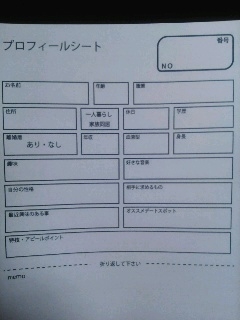 プロフィールシート
番号
NO
お名前
年齢
職業
住所
一人暮らし
家族同居
休日
学歴
離婚歴
あり・なし
年収
血液型
身長
趣味
好きな音楽
自分の性格
相手に求めるもの
最近興味のある事
オススメデートスポット
特技・アピールポイント
折り返して下さい
memo